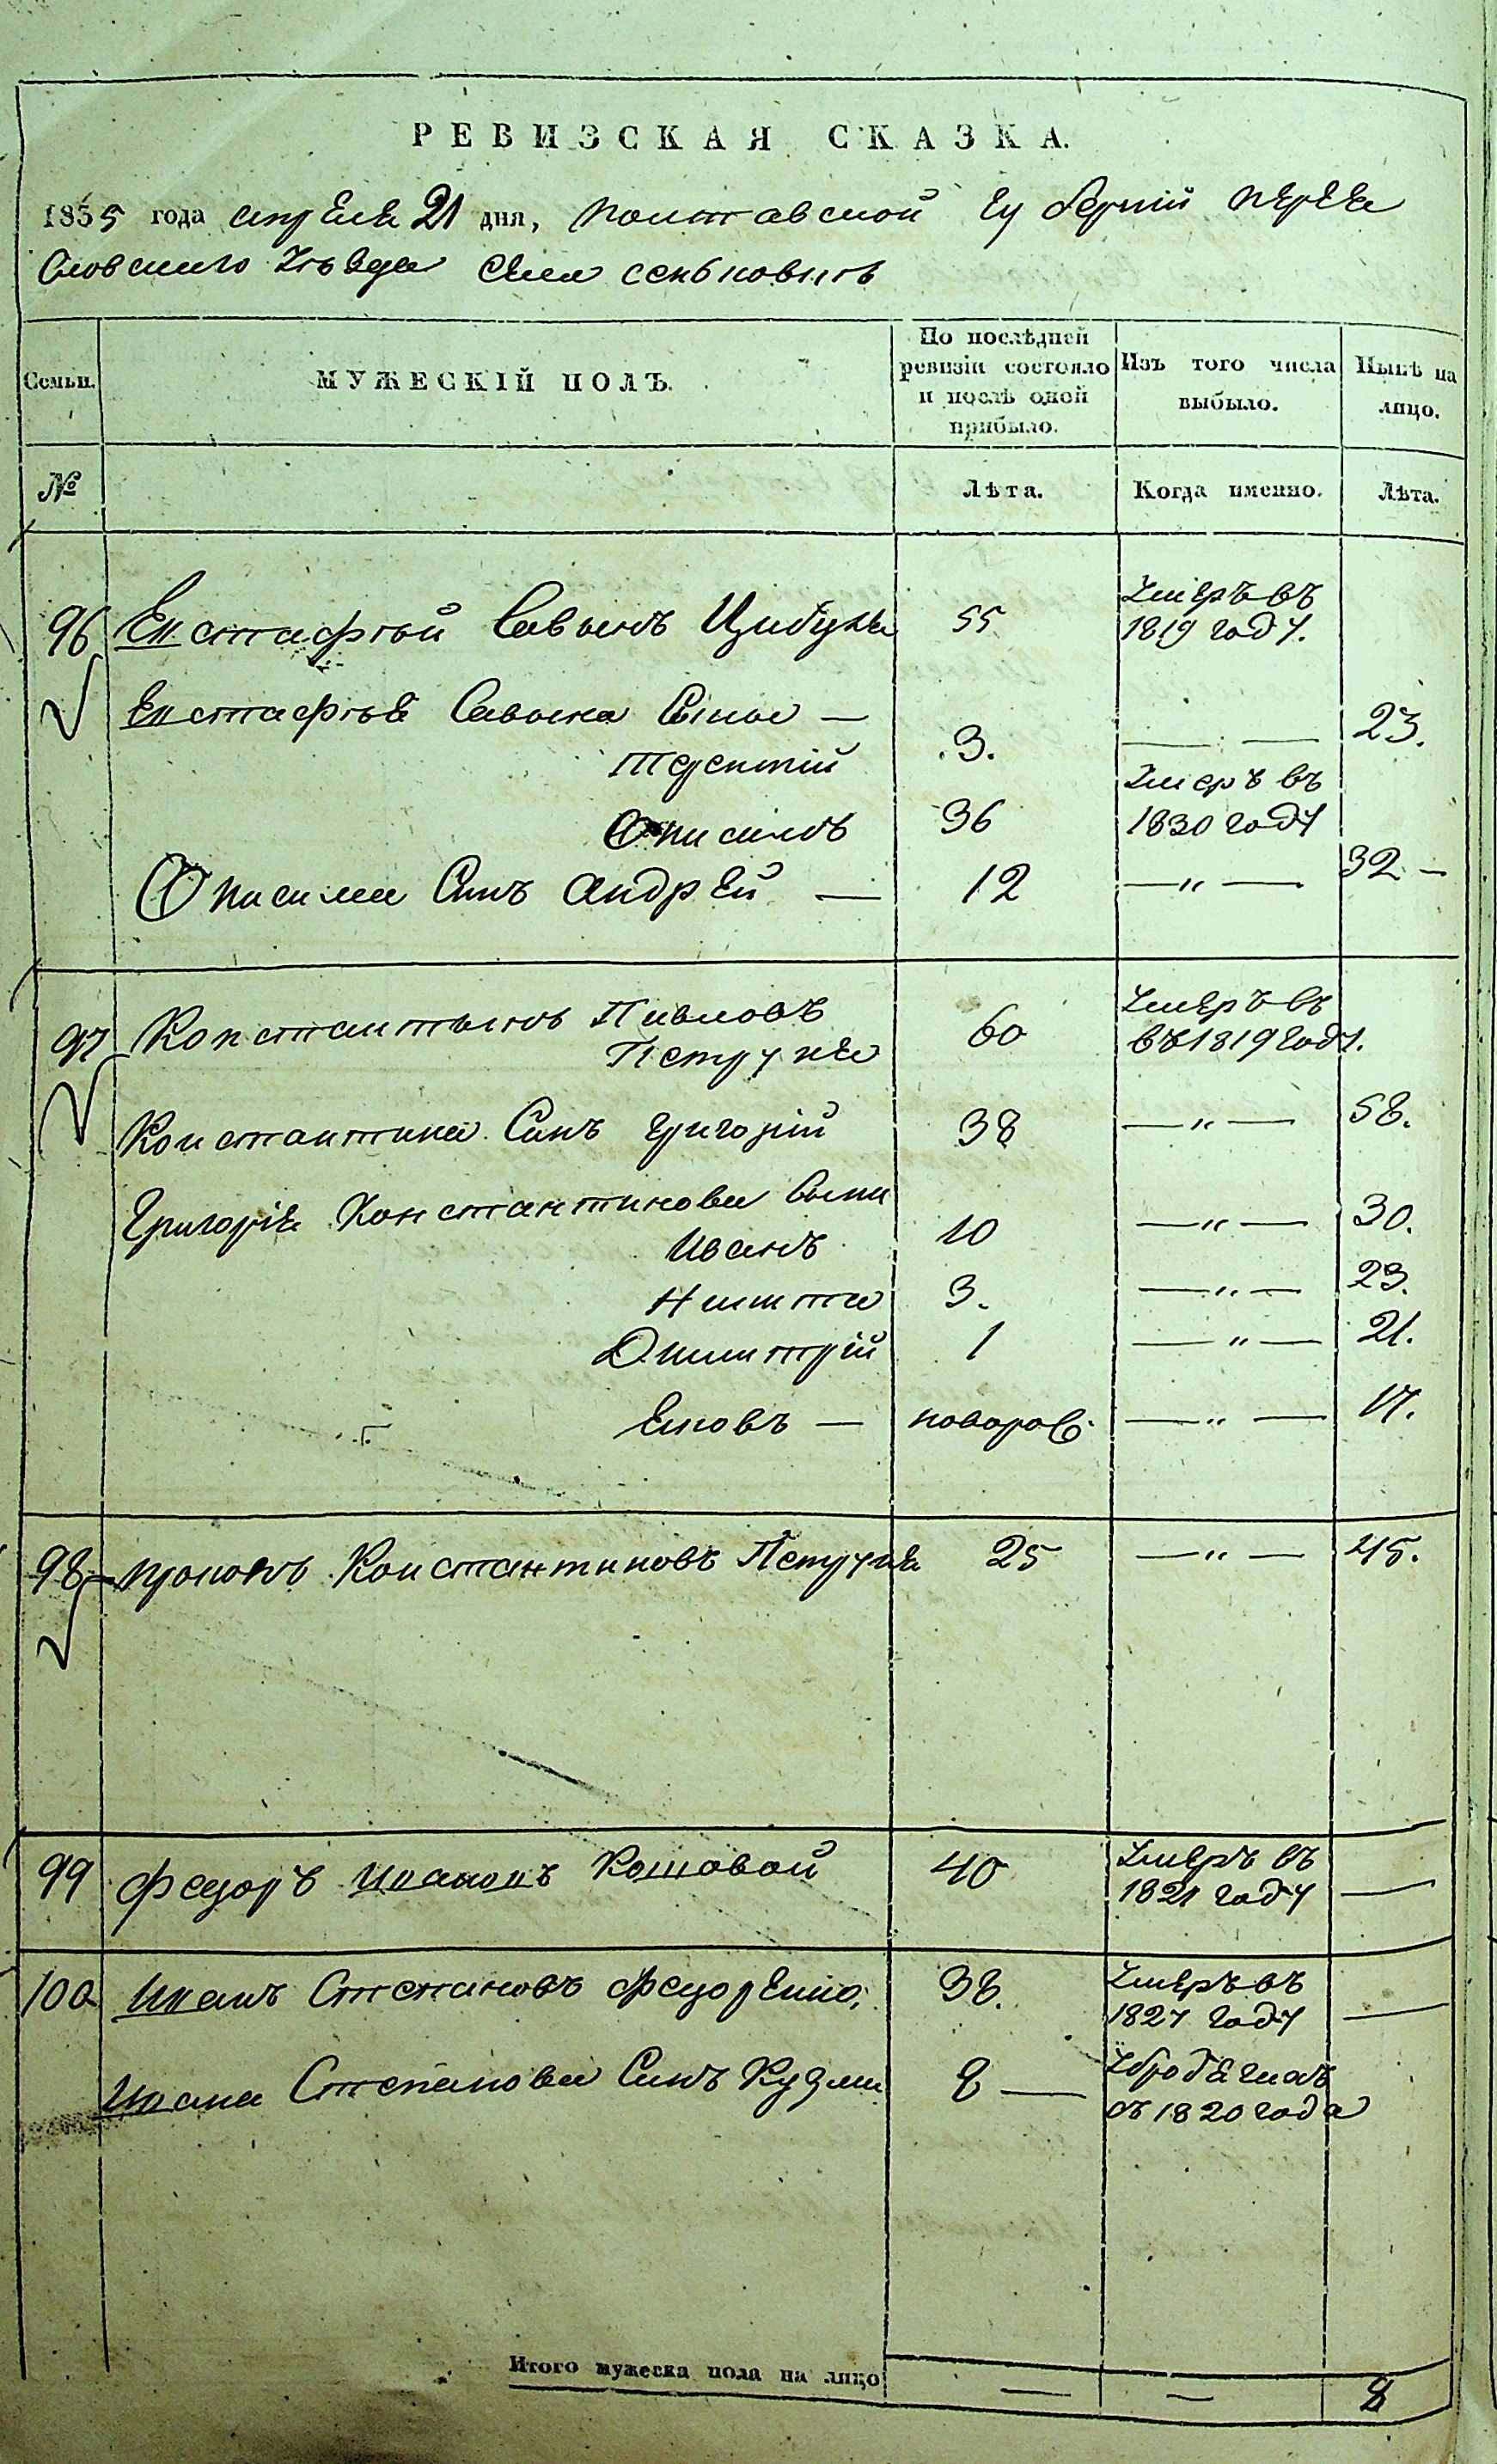 РЕВИЗСКАЯ СКАЗКА.
1835 года апреля 21 дня, полтавской губерніи перея
словского уъзда села сенковцъ
Семьи. МУЖЕСКІЙ ПОЛЪ. По послѣдней ревизіи состояло и послѣ оной прибыло. Изъ того числа выбыло. Нынѣ на лицо.
№ Лѣта. Когда именно. Лѣта.
96 Евстафій Савынъ Цибуля 55 Умеръ въ 1819 году.
Евстафія Савына Сыны —
Терентій 3. — — 23.
Онисимъ 36 Умеръ въ 1830 году
Онисима Синъ Андрей — 12 — " — 32 —
97 Константынъ Павловъ
Петруня 60 Умеръ въ въ 1819 году.
Константина Синъ Григорій 38 — " — 58.
Григорія Константинова Сыни
Иванъ 10 — " — 30.
Никита 3. — " — 23.
Дмитрій 1 — " — 21.
Яковъ — новорож: — " — 17.
98 Прокопъ Константиновъ Петруня 25 — " — 45.
99 Федоръ Ивановъ Кошовой 40 Умеръ въ 1821 году —
100 Иванъ Степановъ Федоренко, 38. Умеръ въ 1827 году —
Ивана Степанова Синъ Кузма 8 — съ 1820 года
Итого мужеска пола на лицо — — 8